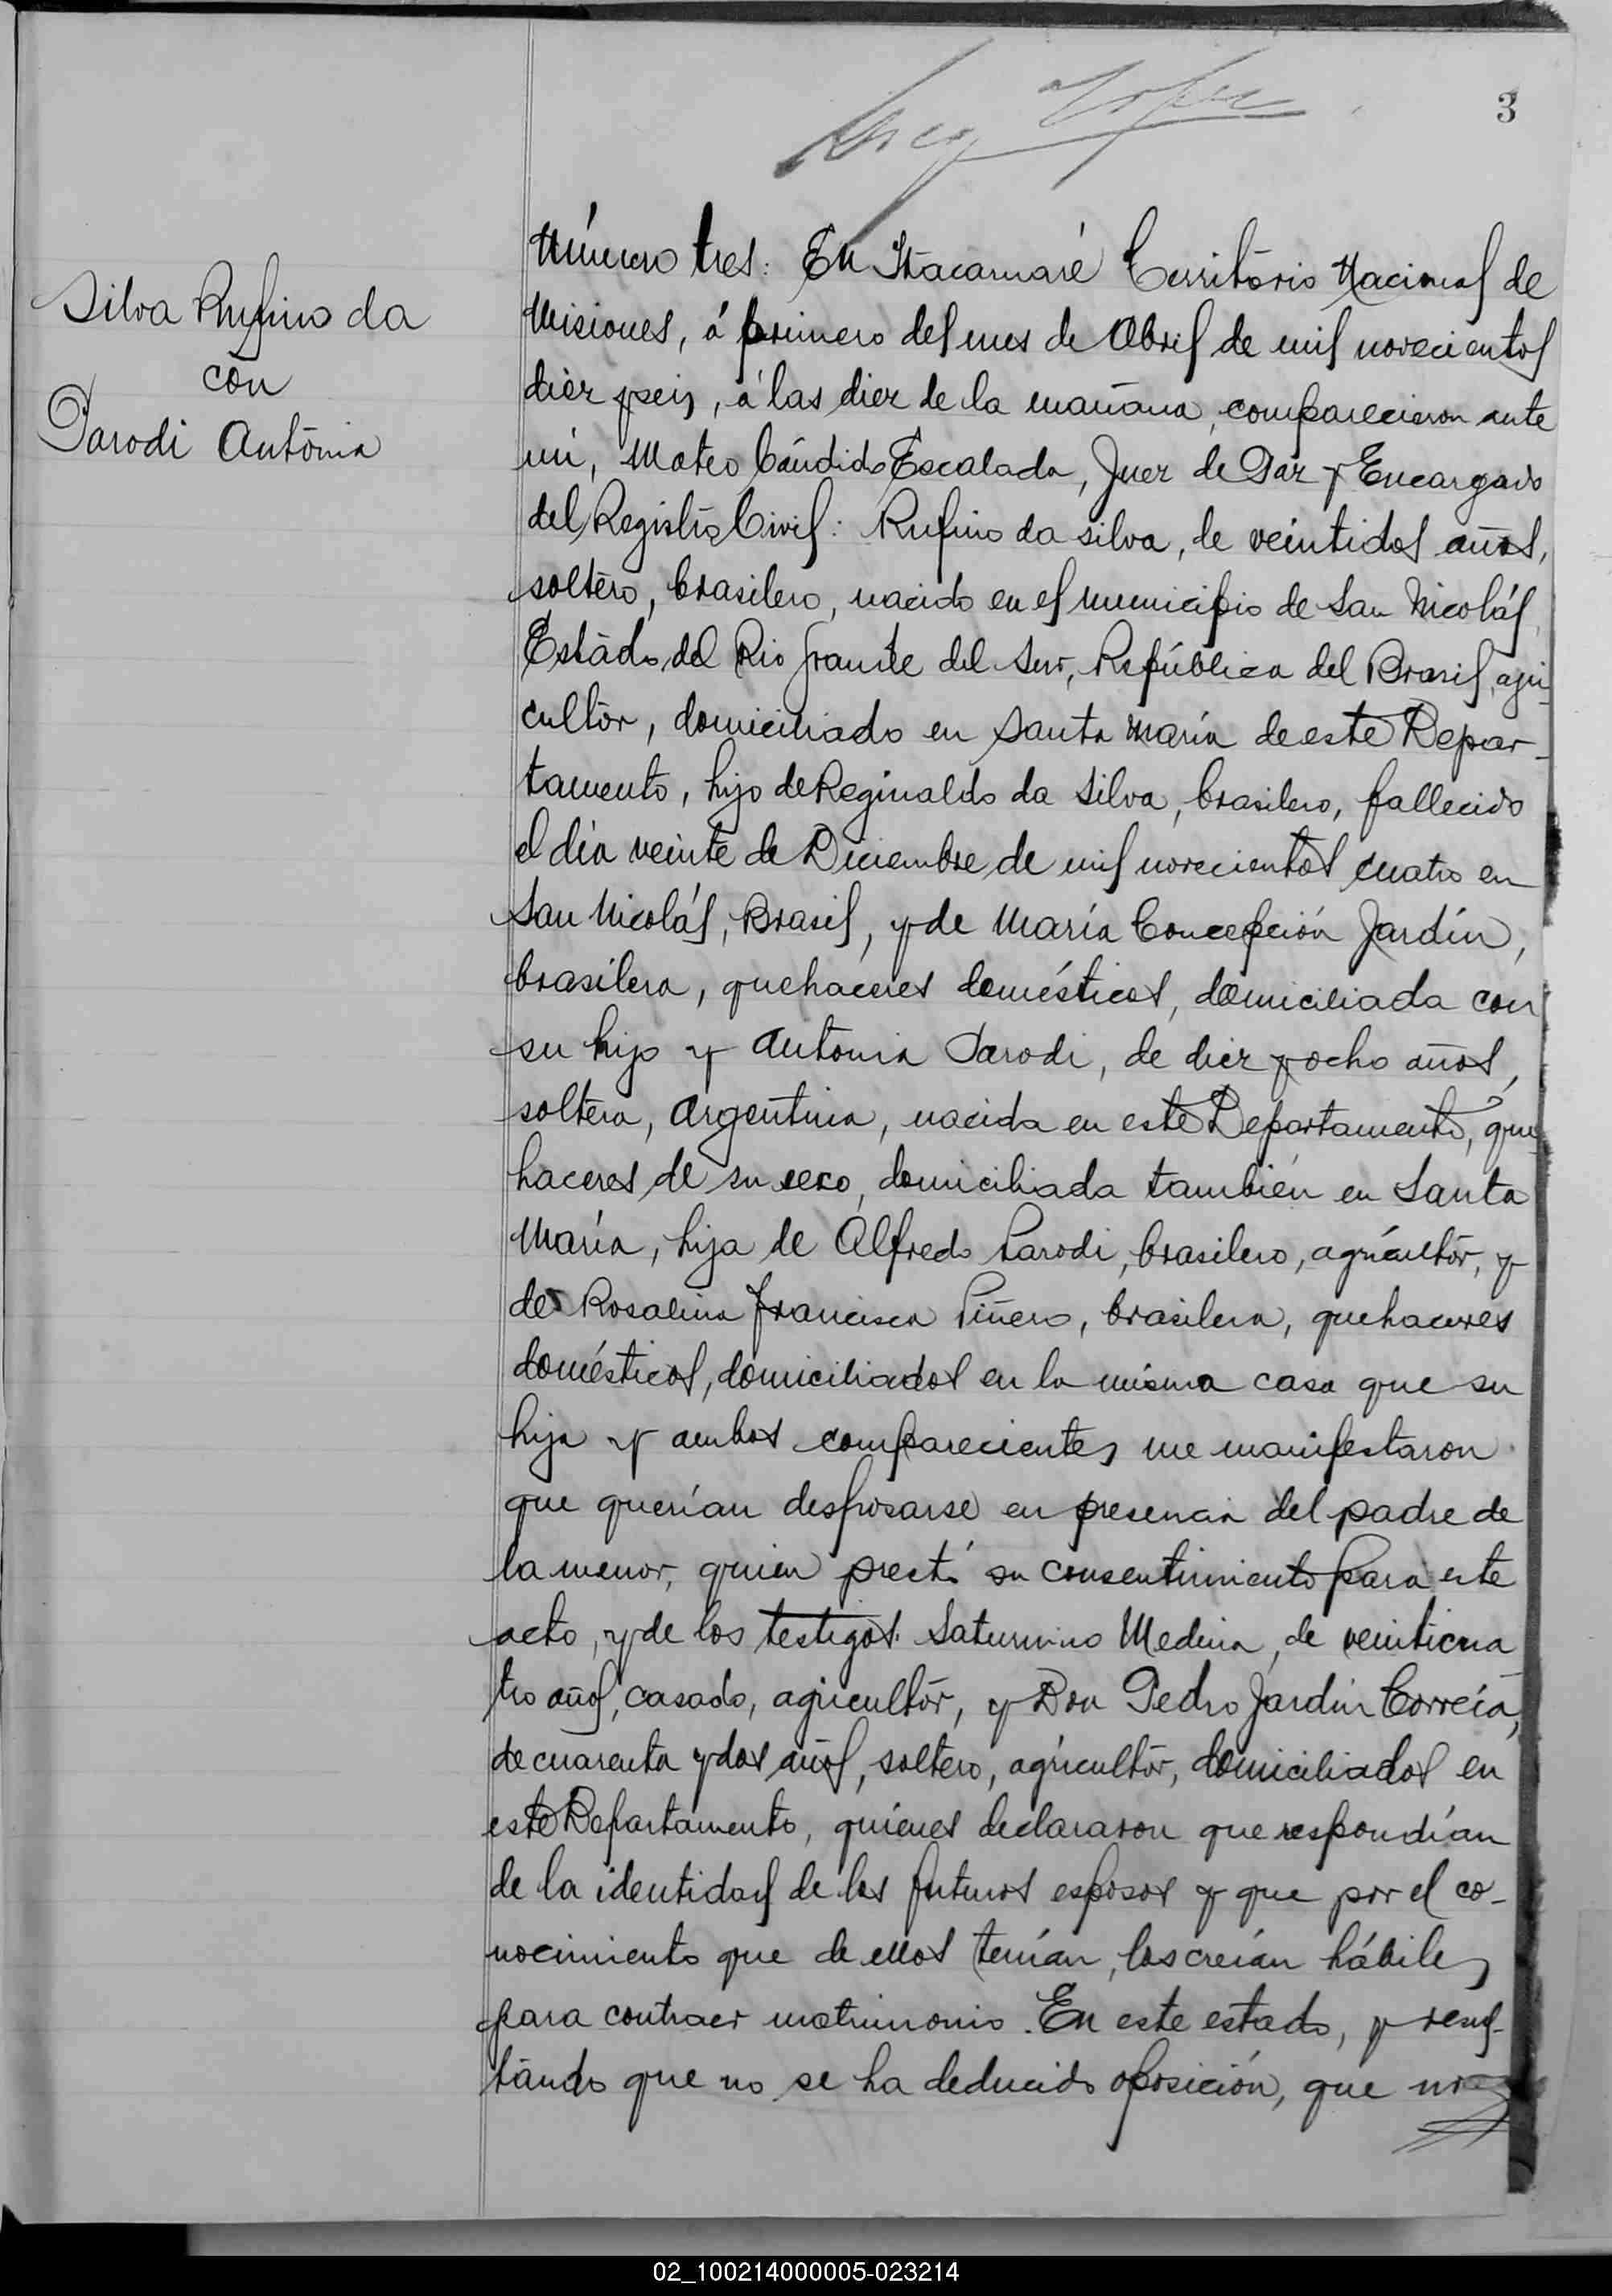 3
Silva Rufino da
con
Parodi Antonia
Número tres: En Itacaruaré Territorio Nacional de
Misiones, á primero del mes de Abril de mil novecientos
diez y seis, á las diez de la mañana, comparecieron ante
mí, Mateo Cándido Escalada, Juez de Paz y Encargado
del Registro Civil: Rufino da Silva, de veintidos años,
soltero, brasilero, nacido en el municipio de San Nicolás,
Estado del Rio Grande del Sur, República del Brasil, agri-
cultor, domiciliado en Santa María de este Depar-
tamento, hijo de Reginaldo da Silva, brasilero, fallecido
el día veinte de Diciembre de mil novecientos cuatro en
San Nicolás, Brasil, y de María Concepción Jardín,
brasilera, quehaceres domésticos, domiciliada con
su hijo y Antonia Parodi, de diez y ocho años,
soltera, Argentina, nacida en este Departamento, que-
haceres de su sexo, domiciliada también en Santa
María, hija de Alfredo Parodi, brasilero, agricultor, y
de Rosalina Francisca Piñero, brasilera, quehaceres
domésticos, domiciliados en la misma casa que su
hija y ambos comparecientes me manifestaron
que querían desposarse en presencia del padre de
la menor, quien prestó su consentimiento para este
acto, y de los testigos: Saturnino Medina, de veinticua
tro años, casado, agricultor, y Don Pedro Jardin Correía,
de cuarenta y dos años, soltero, agricultor, domiciliados en
este Departamento, quiénes declararon que respondían
de la identidad de los futuros esposos y que por el co-
nocimiento que de ellos tenían, los creían hábiles
para contraer matrimonio. En este estado, y resul-
tando que no se ha deducido oposición, que no
02_100214000005-023214